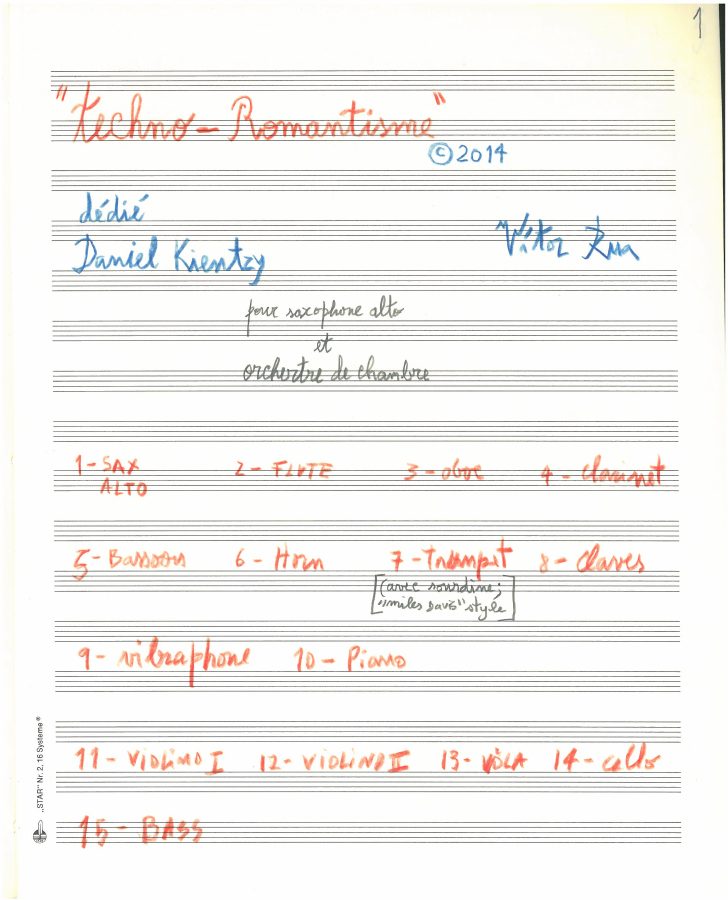 1
"techno-Romantisme"
© 2014
dédié
Daniel Kientzy
Vítor Rua
pour saxophone alto
et
orchertre de chambre
1-SAX ALTO 2-FLUTE 3-oboe 4-Clarinet
5-Bassoon 6-Horn 7-Trumpet 8-Claves
[(avec sourdine;
"miles Davis" style]
9-vibraphone 10-Piano
11-VIOLINO I 12-VIOLINO II 13-VIOLA 14-cello
15-BASS
„STAR" Nr. 2, 16 Systeme ®